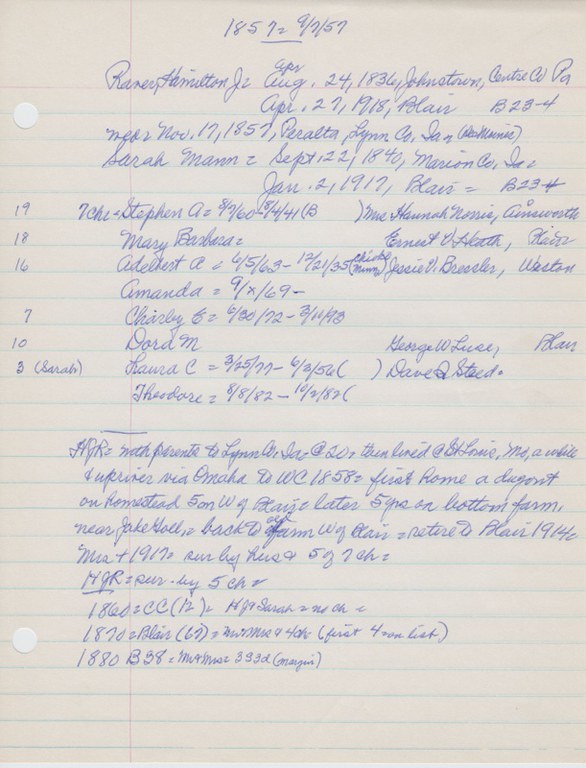 1857 = 9/7/57
Raver, Hamilton Jr = Aug. 24, 1836, Johnstown, Centre Co Pa
Apr
Apr. 27, 1918, Blair B23-4
near Nov. 17, 1857, Peralta, Lynn Co. Ia =
Sarah Mann = Sept. 22, 1840, Marion Co, Ia =
Jan. 2, 1917, Blair = B23-4
19 7 ch = Stephen A = 8/7/60 - 8/4/41 (B ) Mrs Hannah Norris, Ainsworth
18 Mary Barbara = Ernest V Heath, Blair
16 Adelbert A = 6/5/63 - 12/21/35 Jessie V. Bressler, Weston
Amanda = 9/x/69 -
7 Charley E = 6/30/72 - 3/11/93
10 Dora M George W Luse, Blair
3 (Sarah) Laura C = 3/25/77 - 6/2/56 ( ) Dave S Steed =
Theodore = 8/8/82 - 10/2/82 (
HJR = with parents to Lynn Co, Ia = @ 20 = then lived @ St Louis, Mo, a while
& upriver via Omaha to WC 1858 = first home a dugout
on homestead 5 m W of Blair = later 5 yrs on bottom farm,
near Jake Goll, = back to farm W of Blair = retire to Blair 1914 =
Mrs + 1917 = sur by hus & 5 of 7 ch =
HJR = sur. by 5 ch =
1860 = CC (12) = HJ & Sarah = no ch =
1870 = Blair (67) = Mr & Mrs & 4 ch (first 4 on list)
1880 B38 = Mr & Mrs = 3 s 3 d (margin)